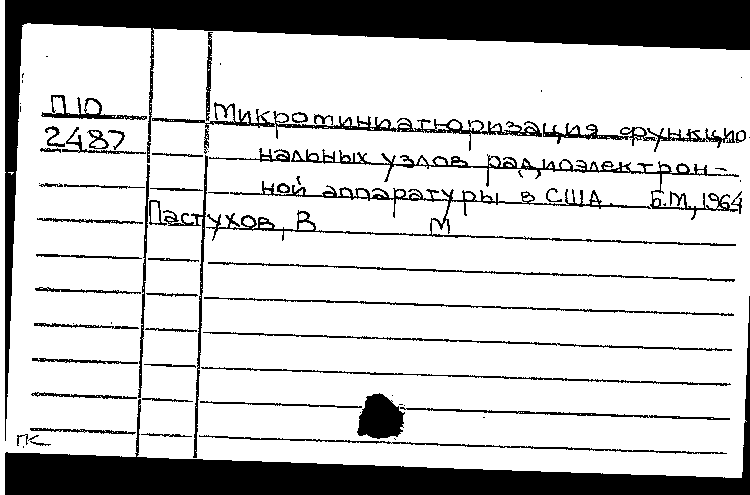 П10 Микроминиатюризация функцио-
2487 нальных узлов радиоэлектрон-
ной аппаратуры в США. Б.М., 1964
Пастухов, В М
ПК